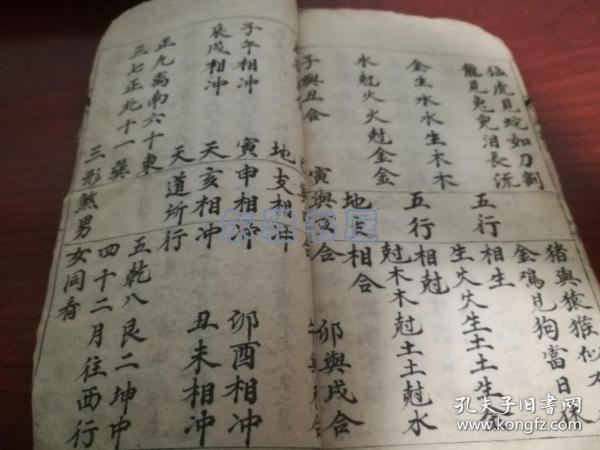 猛虎見蛇如刀割
猪與猿猴似
龍見兔兒泪長流
金鸡見狗當日休
五行相生
金生水水生木木
生火火生土土生金
五行相尅
水尅火火尅金金
尅木木尅土土尅水
地支相合
子與丑合
寅與亥合
卯與戌合
地支相冲
子午相冲
寅申相冲
卯酉相冲
辰戌相冲
天亥相冲
丑未相冲
天道所行
正九离南六十東
五乾八艮二坤中
三七正北十一巽
四十二月往西行
三形煞男
女同看
孔夫子旧书网
www.kongfz.com